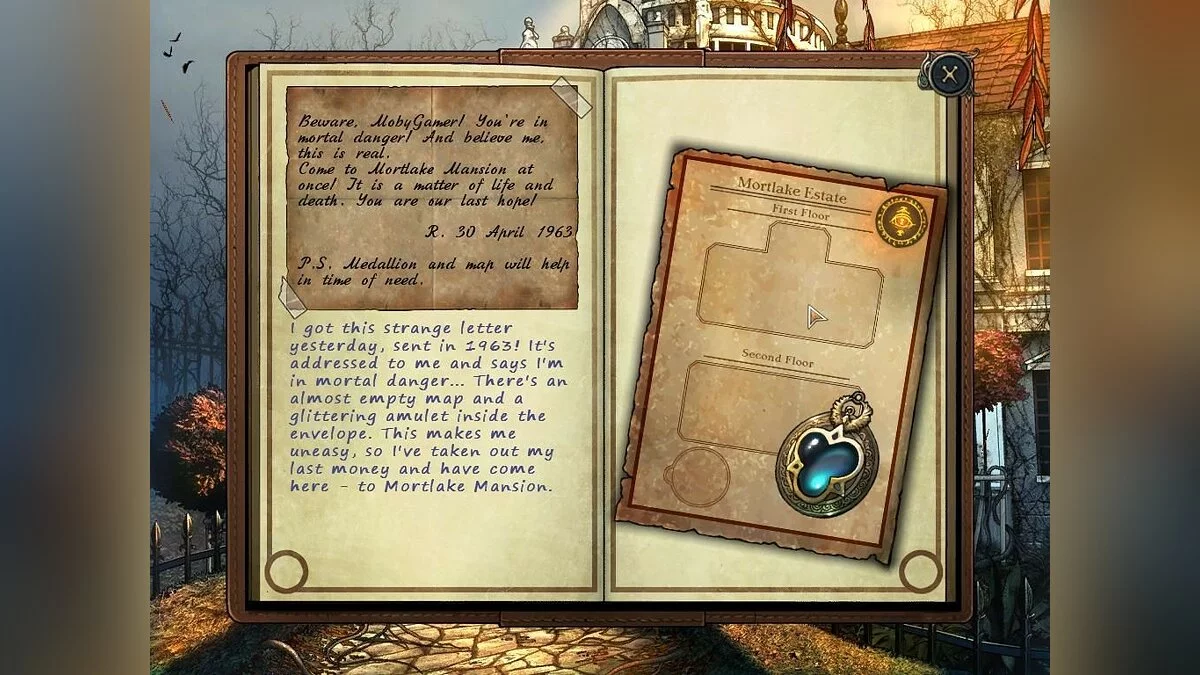 Beware, MobyGamer! You're in
mortal danger! And believe me,
this is real.
Come to Mortlake Mansion at
once! It is a matter of life and
death. You are our last hope!
R. 30 April 1963
P.S. Medallion and map will help
in time of need.
I got this strange letter
yesterday, sent in 1963! It's
addressed to me and says I'm
in mortal danger... There's an
almost empty map and a
glittering amulet inside the
envelope. This makes me
uneasy, so I've taken out my
last money and have come
here - to Mortlake Mansion.
Mortlake Estate
First Floor
Second Floor